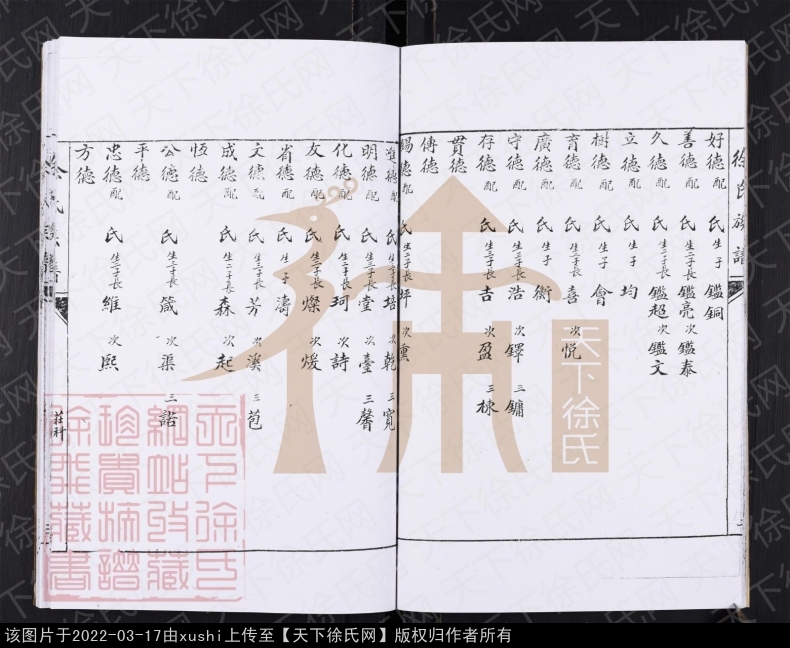 徐氏族譜
好德配 氏生子 鑑銅
善德配 氏生二子長 鑑亮 次 鑑泰
久德配 氏生二子長 鑑超 次 鑑文
立德配 氏生子 均
樹德配 氏生子 會
育德配 氏生二子長 喜 次 悅
廣德配 氏生子 衡
守德配 氏生三子長 浩 次 鐸 三 鏞
存德配 氏生三子長 吉 次 盈 三 棣
貫德
傳德
錫德配 氏生二子長 坪 次 熏
德配 氏生三子長 培 次 乾 三 寬
明德配 氏生三子長 堂 次 臺 三 馨
化德配 氏生二子長 珂 次 詩
友德配 氏生二子長 燦 次 煖
省德配 氏生子 濤
文德配 氏生三子長 芳 次 溪 三 苞
成德配 氏生二子長 森 次 起
恆德
公德配 氏生三子長 箴 次 渠 三 諾
平德
忠德配 氏生二子長 維 次 熙
方德
徐氏族譜
莊科
天下徐氏
天下徐氏
網站收藏
珍貴族譜
徐我藏書
天下徐氏网
该图片于2022-03-17由xushi上传至【天下徐氏网】版权归作者所有